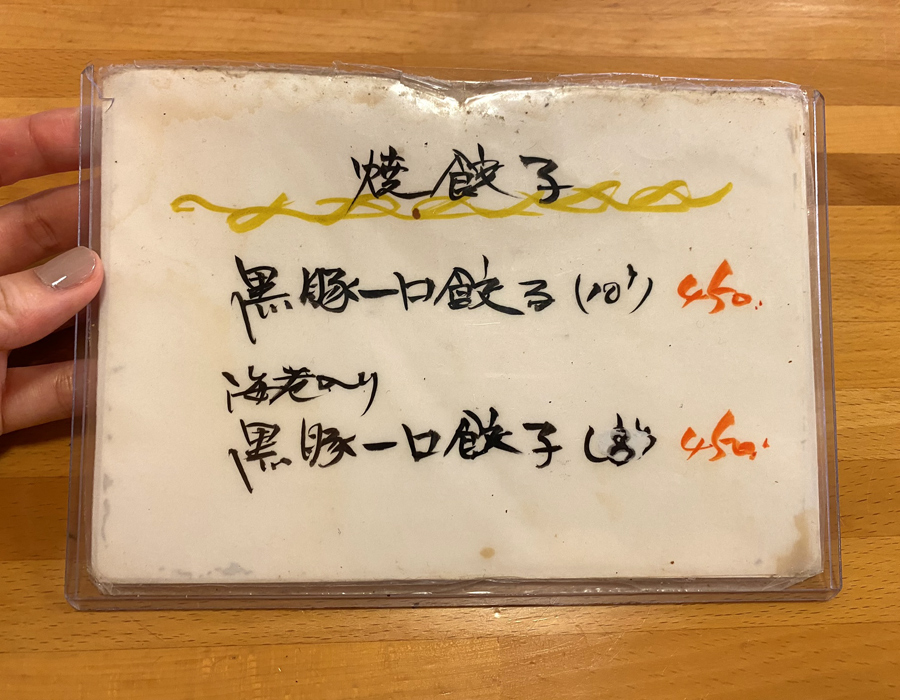 焼餃子
黒豚一口餃子(10ケ) 450.
海老入り
黒豚一口餃子(8ケ) 450.